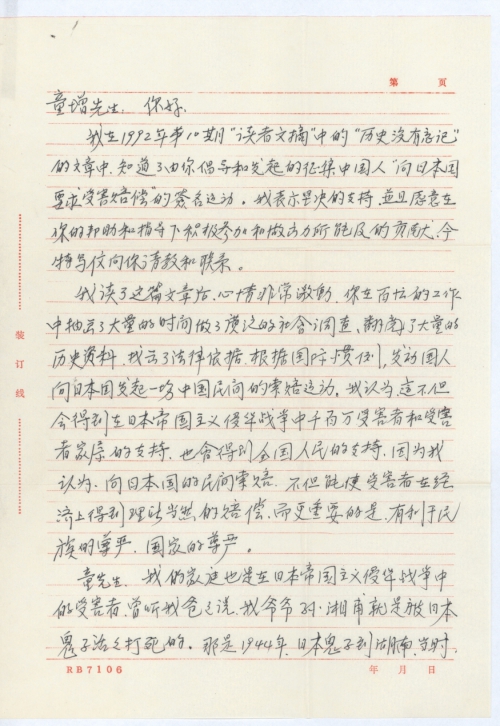 第 页
童增先生: 你好.
我在1992年第10期"读者文摘"中的"历史没有忘记"
的文章中.知道了由你倡导和发起的征集中国人"向日本国
要求受害赔偿"的签名运动。我表示坚决的支持.並且愿意在
你的帮助和指导下积极参加和做出力所能及的贡献.今
特写信向你请教和联系。
我读了这篇文章后.心情非常激动.你在百忙的工作
中抽出了大量的时间做了广泛的社会调查、翻阅了大量的
历史资料.找出了法律依据.根据国际惯例.发动国人
向日本国发起一场中国民间的索赔运动.我认为.这不但
会得到在日本帝国主义侵华战争中千百万受害者和受害
者家属的支持.也会得到全国人民的支持.因为我
认为.向日本国的民间索赔.不但能使受害者在经
济上得到理所当然的赔偿.而更重要的是.有利于民
族的尊严.国家的尊严。
童先生.我的家庭也是在日本帝国主义侵华战争中
的受害者.曾听我爸爸说.我爷爷 湘甫就是被日本
鬼子活活打死的.那是1944年.日本鬼子到湖南.当时
装订线
RB7106
年 月 日